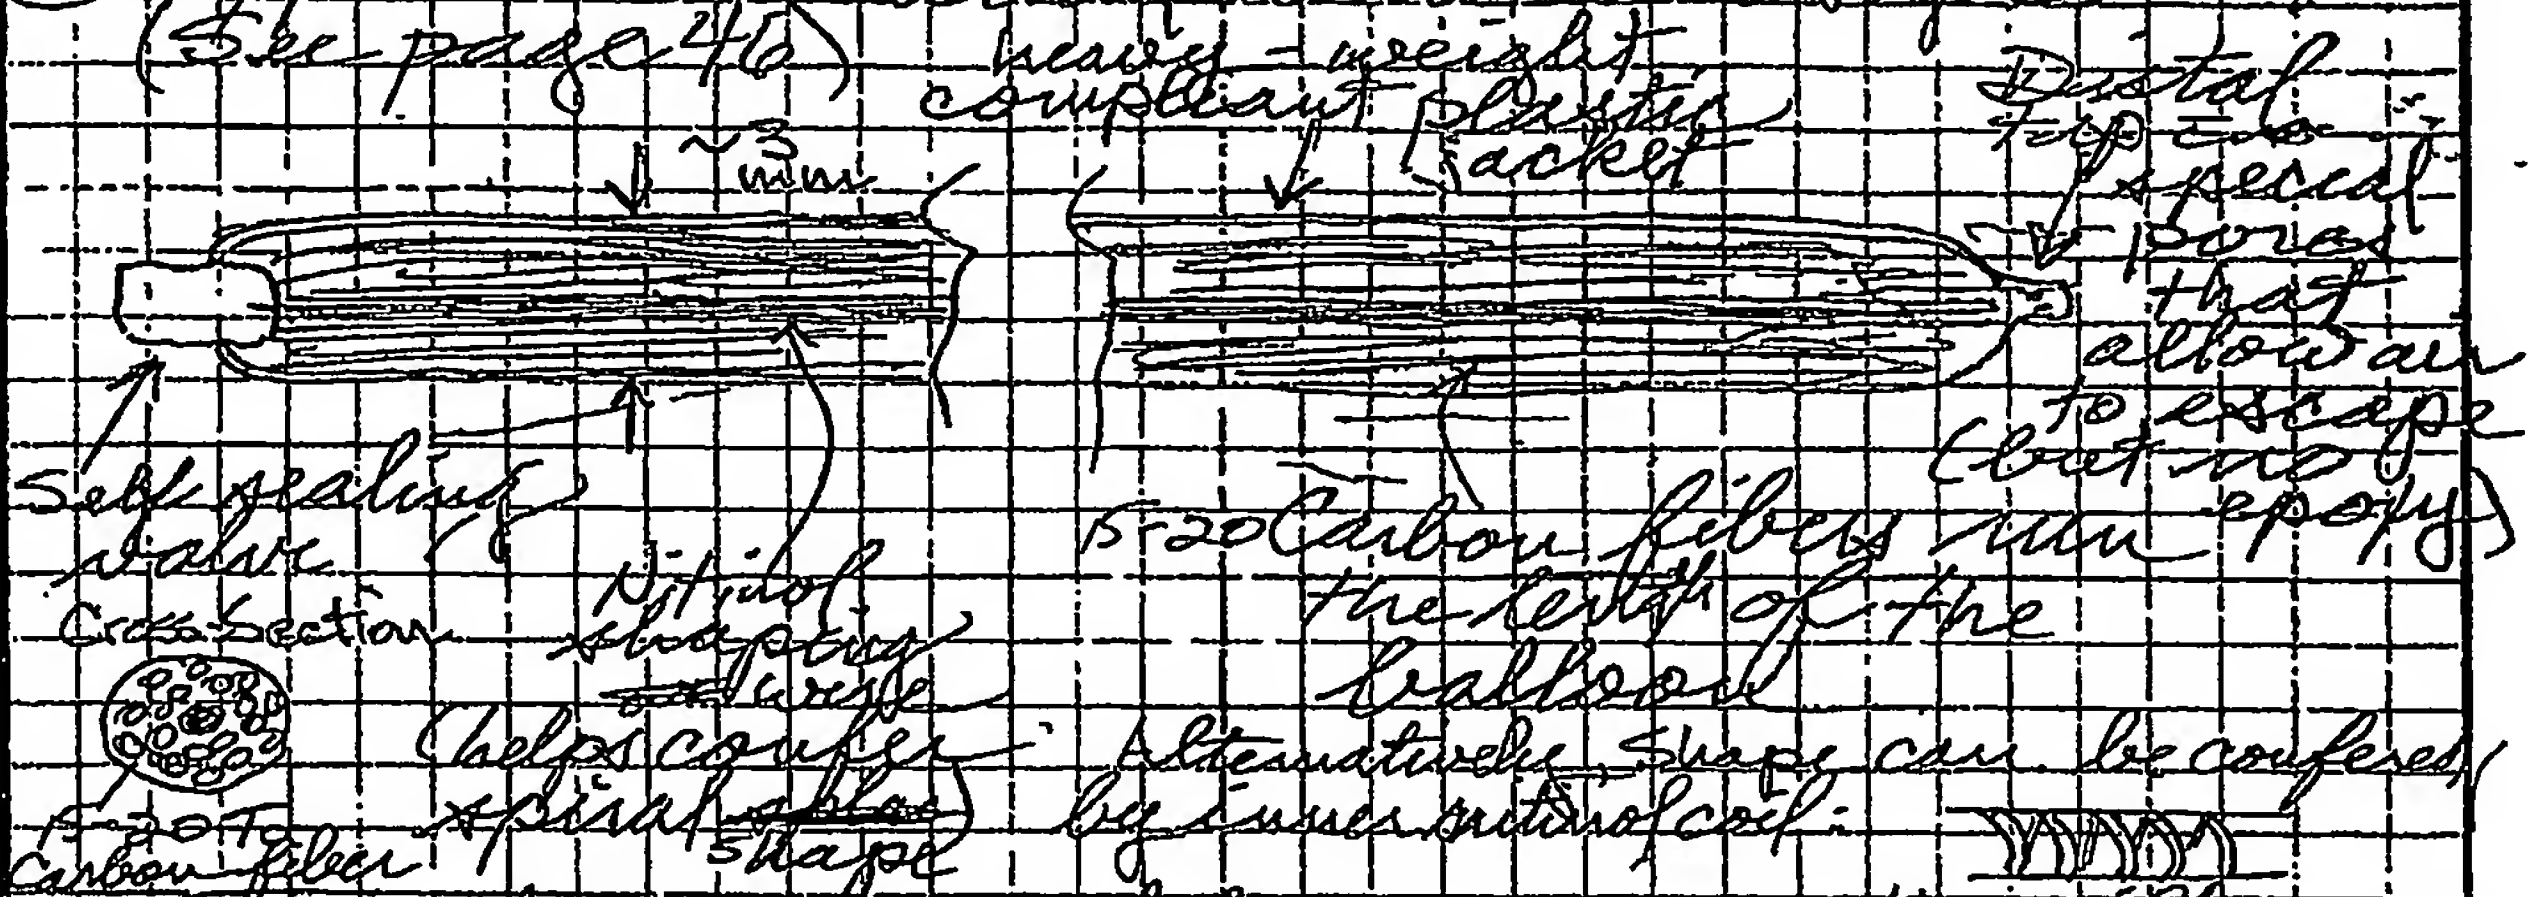 (See page 46)
heavy-weight
compliant plastic
Jacket
~3
mm
Distal
Tip
special
pores
that
allow air
to escape
(but no
epoxy)
Self sealing
valve
Nitinol
shaping
wire
(helps confer
spiral
shape)
15-20 Carbon fibers run
the length of the
balloon
Cross-Section
15-20 T
Carbon fiber
Alternatively shape can be confered
by inner nitinol coil.